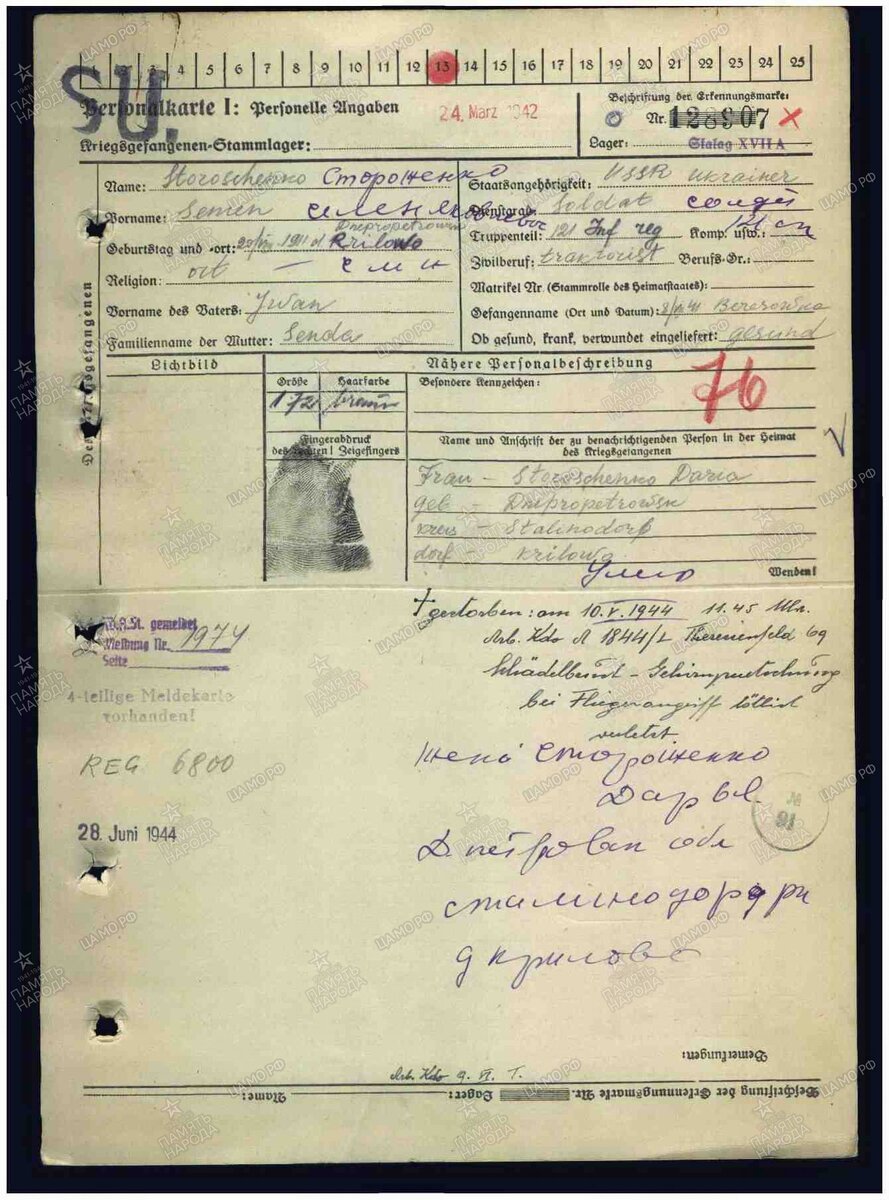 3 4 5 6 7 8 9 10 11 12 13 14 15 16 17 18 19 20 21 22 23 24 25
SU.
Personalkarte I: Personelle Angaben
24. März 1942
Beschriftung der Erkennungsmarke:
Nr. 128907
Kriegsgefangenen-Stammlager:
Lager: Stalag XVII A
Name: Storoschenko Стороженко
Staatsangehörigkeit: USSR Ukrainer
Vorname: Semen семен
Dienstgrad: Soldat солдат
Dnepropetrowsk
Truppenteil: 121 Inf reg Komp. usw.: 121 сп
Geburtstag und -ort: 1911 Krilowo
Zivilberuf: traktorist Berufs-Gr.:
Religion: ort —
Matrikel Nr. (Stammrolle des Heimatstaates):
Vorname des Vaters: Iwan
Gefangenname (Ort und Datum): Beresowka
Familienname der Mutter: Senda
Ob gesund, krank, verwundet eingeliefert: gesund
Des Kriegsgefangenen
Lichtbild
Nähere Personalbeschreibung
Größe Haarfarbe
1.72 braun
Besondere Kennzeichen:
76
Fingerabdruck
des rechten! Zeigefingers
Name und Anschrift der zu benachrichtigenden Person in der Heimat
des Kriegsgefangenen
Frau - Storoschenko Daria
geb - Dnepropetrowsk
kreis - Stalinodorf
dorf - Krilowa
Wenden!
gestorben: am 10.V.1944 11.45 Uhr.
Arb. Kdo A 1844/L Theresienfeld 69
Schädelbruch - Gehirnquetschung
bei Fliegerangriff tötlich
verletzt
W.A.St. gemeldet
Meldung Nr. 1974
Seite
4-teilige Meldekarte
vorhanden!
REG 6800
28. Juni 1944
жена Стороженко
Дарья
№
91
обл
сталиндорф рн
д крилово
Bemerkungen:
Arb. Kdo 9. VI. T.
Beschriftung der Erkennungsmarke Nr. Lager: Name:
ПАМЯТЬ НАРОДА
ЦАМО.РФ